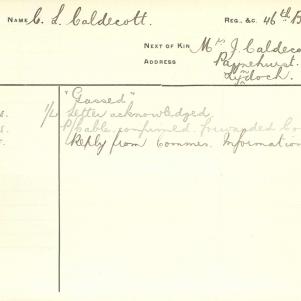 NAME C. L. Caldecott. REG. &C. 46th B
NEXT OF KIN Mrs J. Caldeco
ADDRESS Paynehurst.
Lyndoch.
"Gassed"
s. 1/2 Letter acknowledged.
s. P/Cable confirmed. forwarded Co
Reply from Commrs. Information